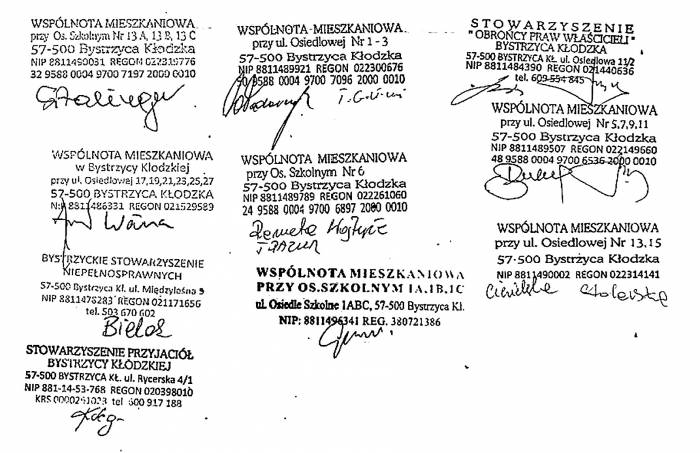 WSPÓLNOTA MIESZKANIOWA
przy Os. Szkolnym Nr 13 A, 13 B, 13 C
57-500 Bystrzyca Kłodzka
NIP 8811490031 REGON 022319776
32 9588 0004 9700 7197 2000 0010
WSPÓLNOTA MIESZKANIOWA
w Bystrzycy Kłodzkiej
przy ul. Osiedlowej 17,19,21,23,25,27
57-500 BYSTRZYCA KŁODZKA
8811486331 REGON 021529589
Wana
BYSTRZYCKIE STOWARZYSZENIE
NIEPEŁNOSPRAWNYCH
57-500 Bystrzyca Kł. ul. Międzyleśna 5
NIP 8811476283 REGON 021171656
tel. 503 670 602
Bielas
STOWARZYSZENIE PRZYJACIÓŁ
BYSTRZYCY KŁODZKIEJ
57-500 BYSTRZYCA KŁ. ul. Rycerska 4/1
NIP 881-14-53-768 REGON 020398010
KRS tel 600 917 188
WSPÓLNOTA MIESZKANIOWA
przy ul. Osiedlowej Nr 1 - 3
57-500 Bystrzyca Kłodzka
NIP 8811489921 REGON 022300676
9588 0004 9700 7096 2000 0010
WSPÓLNOTA MIESZKANIOWA
przy Os. Szkolnym Nr 6
57-500 Bystrzyca Kłodzka
NIP 8811489789 REGON 022261060
24 9588 0004 9700 6897 2000 0010
WSPÓLNOTA MIESZKANIOWA
PRZY OS.SZKOLNYM 1A,1B,1C
ul. Osiedle Szkolne 1ABC, 57-500 Bystrzyca Kł.
NIP: 8811496341 REG. 380721386
STOWARZYSZENIE
"OBROŃCY PRAW WŁAŚCICIELI"
BYSTRZYCA KŁODZKA
57-500 BYSTRZYCA KŁ. ul. Osiedlowa 11/2
NIP 8811484390 REGON 021440636
tel. 609 554 845
WSPÓLNOTA MIESZKANIOWA
przy ul. Osiedlowej Nr 5,7,9,11
57-500 Bystrzyca Kłodzka
NIP 8811489507 REGON 022149660
48 9588 0004 9700 6536 2000 0010
WSPÓLNOTA MIESZKANIOWA
przy ul. Osiedlowej Nr 13,15
57-500 Bystrzyca Kłodzka
NIP 8811490002 REGON 022314141